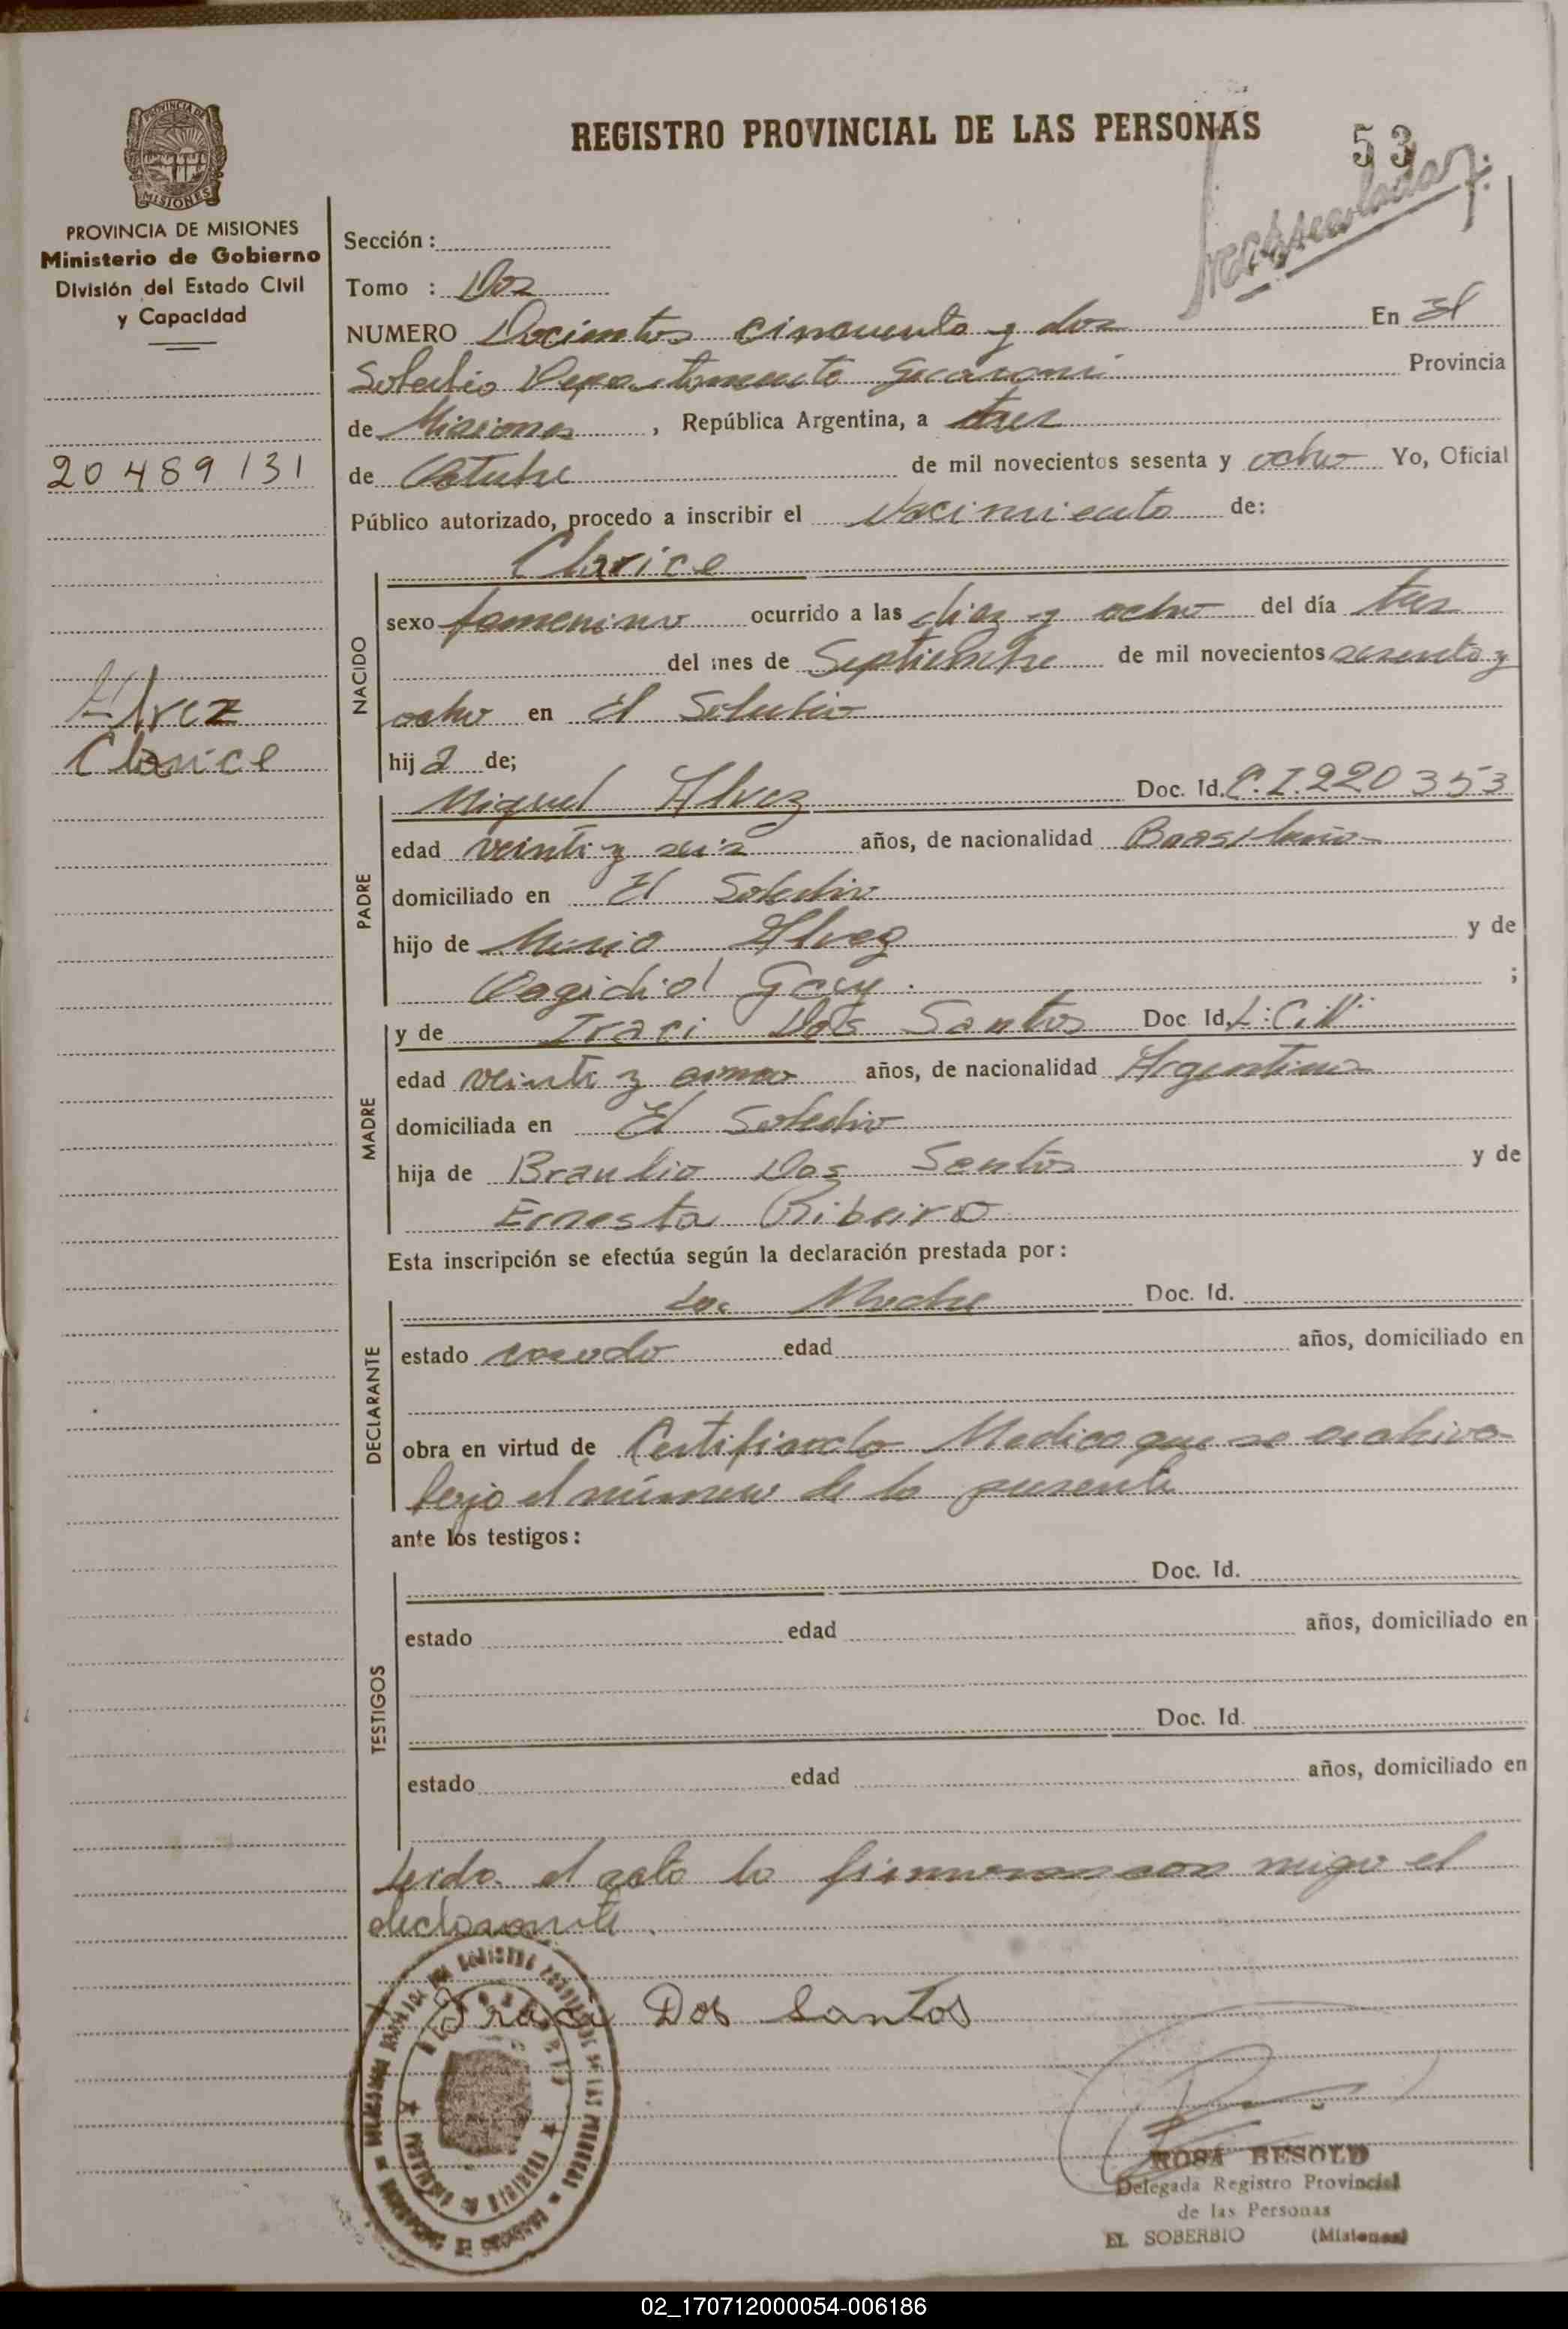 REGISTRO PROVINCIAL DE LAS PERSONAS
53
PROVINCIA DE
MISIONES
PROVINCIA DE MISIONES
Ministerio de Gobierno
División del Estado Civil
y Capacidad
20 489 131
Alvez
Clarice
Sección :
Tomo : Dos
NUMERO Docientos cincuenta y dos En El
Soberbio Departamento Guarani Provincia
de Misiones , República Argentina, a tres
de Octubre de mil novecientos sesenta y ocho Yo, Oficial
Público autorizado, procedo a inscribir el Nacimiento de:
Clarice
NACIDO
sexo femenino ocurrido a las diez y ocho del día tres
del mes de Septiembre de mil novecientos sesenta y
ocho en El Soberbio
hija de;
PADRE
Miguel Alvez Doc. Id. C.I. 220353
edad veinti y seis años, de nacionalidad Brasileño
domiciliado en El Soberbio
hijo de Alvez y de
;
MADRE
y de Iraci Dos Santos Doc Id.
edad veinti y cinco años, de nacionalidad Argentina
domiciliada en El Soberbio
hija de Braulio Dos Santos y de
Ernesta Ribeiro
Esta inscripción se efectúa según la declaración prestada por :
DECLARANTE
La Madre Doc. Id.
estado casado edad años, domiciliado en
obra en virtud de Certificado Medico que se archiva
bajo el número de la presente
ante los testigos :
TESTIGOS
Doc. Id.
estado edad años, domiciliado en
Doc. Id.
estado edad años, domiciliado en
Leida el acta la firmaran con migo el
declarante.
Iraci Dos Santos
ROSA BESOLD
Delegada Registro Provincial
de las Personas
EL SOBERBIO (Misiones)
02_170712000054-006186